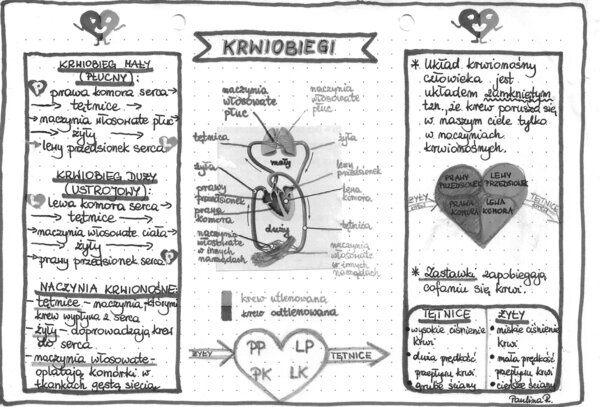 KRWIOBIEG MAŁY
(PŁUCNY):
prawa komora serca →
→ tętnice →
→ naczynia włosowate płuc
→ żyły →
→ lewy przedsionek serca
KRWIOBIEG DUŻY
(USTROJOWY):
lewa komora serca →
→ tętnice →
→ naczynia włosowate ciała
→ żyły →
→ prawy przedsionek serca
NACZYNIA KRWIONOŚNE:
- tętnice - naczynia, którymi
krew wypływa z serca
- żyły - doprowadzają krew
do serca
- naczynia włosowate -
oplatają komórki w
tkankach gęstą siecią
KRWIOBIEGI
naczynia
włosowate
płuc
naczynia
włosowate
płuc
tętnica
żyła
mały
żyła
lewy
przedsionek
prawy
przedsionek
lewa
komora
prawa
komora
duży
tętnica
naczynia
włosowate
w innych
narządach
naczynia
włosowate
w innych
narządach
krew utlenowana
krew odtlenowana
ŻYŁY
PP LP
PK LK
TĘTNICE
* Układ krwionośny
człowieka jest
układem zamkniętym
tzn., że krew porusza się
w naszym ciele tylko
w naczyniach
krwionośnych.
PRAWY
PRZEDSIONEK
LEWY
PRZEDSIONEK
PRAWA
KOMORA
LEWA
KOMORA
ŻYŁY
TĘTNICE
* Zastawki zapobiegają
cofaniu się krwi.
TĘTNICE
• wysokie ciśnienie
krwi
• duża prędkość
przepływu krwi
• grube ściany
ŻYŁY
• niskie ciśnienie
krwi
• mała prędkość
przepływu krwi
• cieńsze ściany
Paulina R.